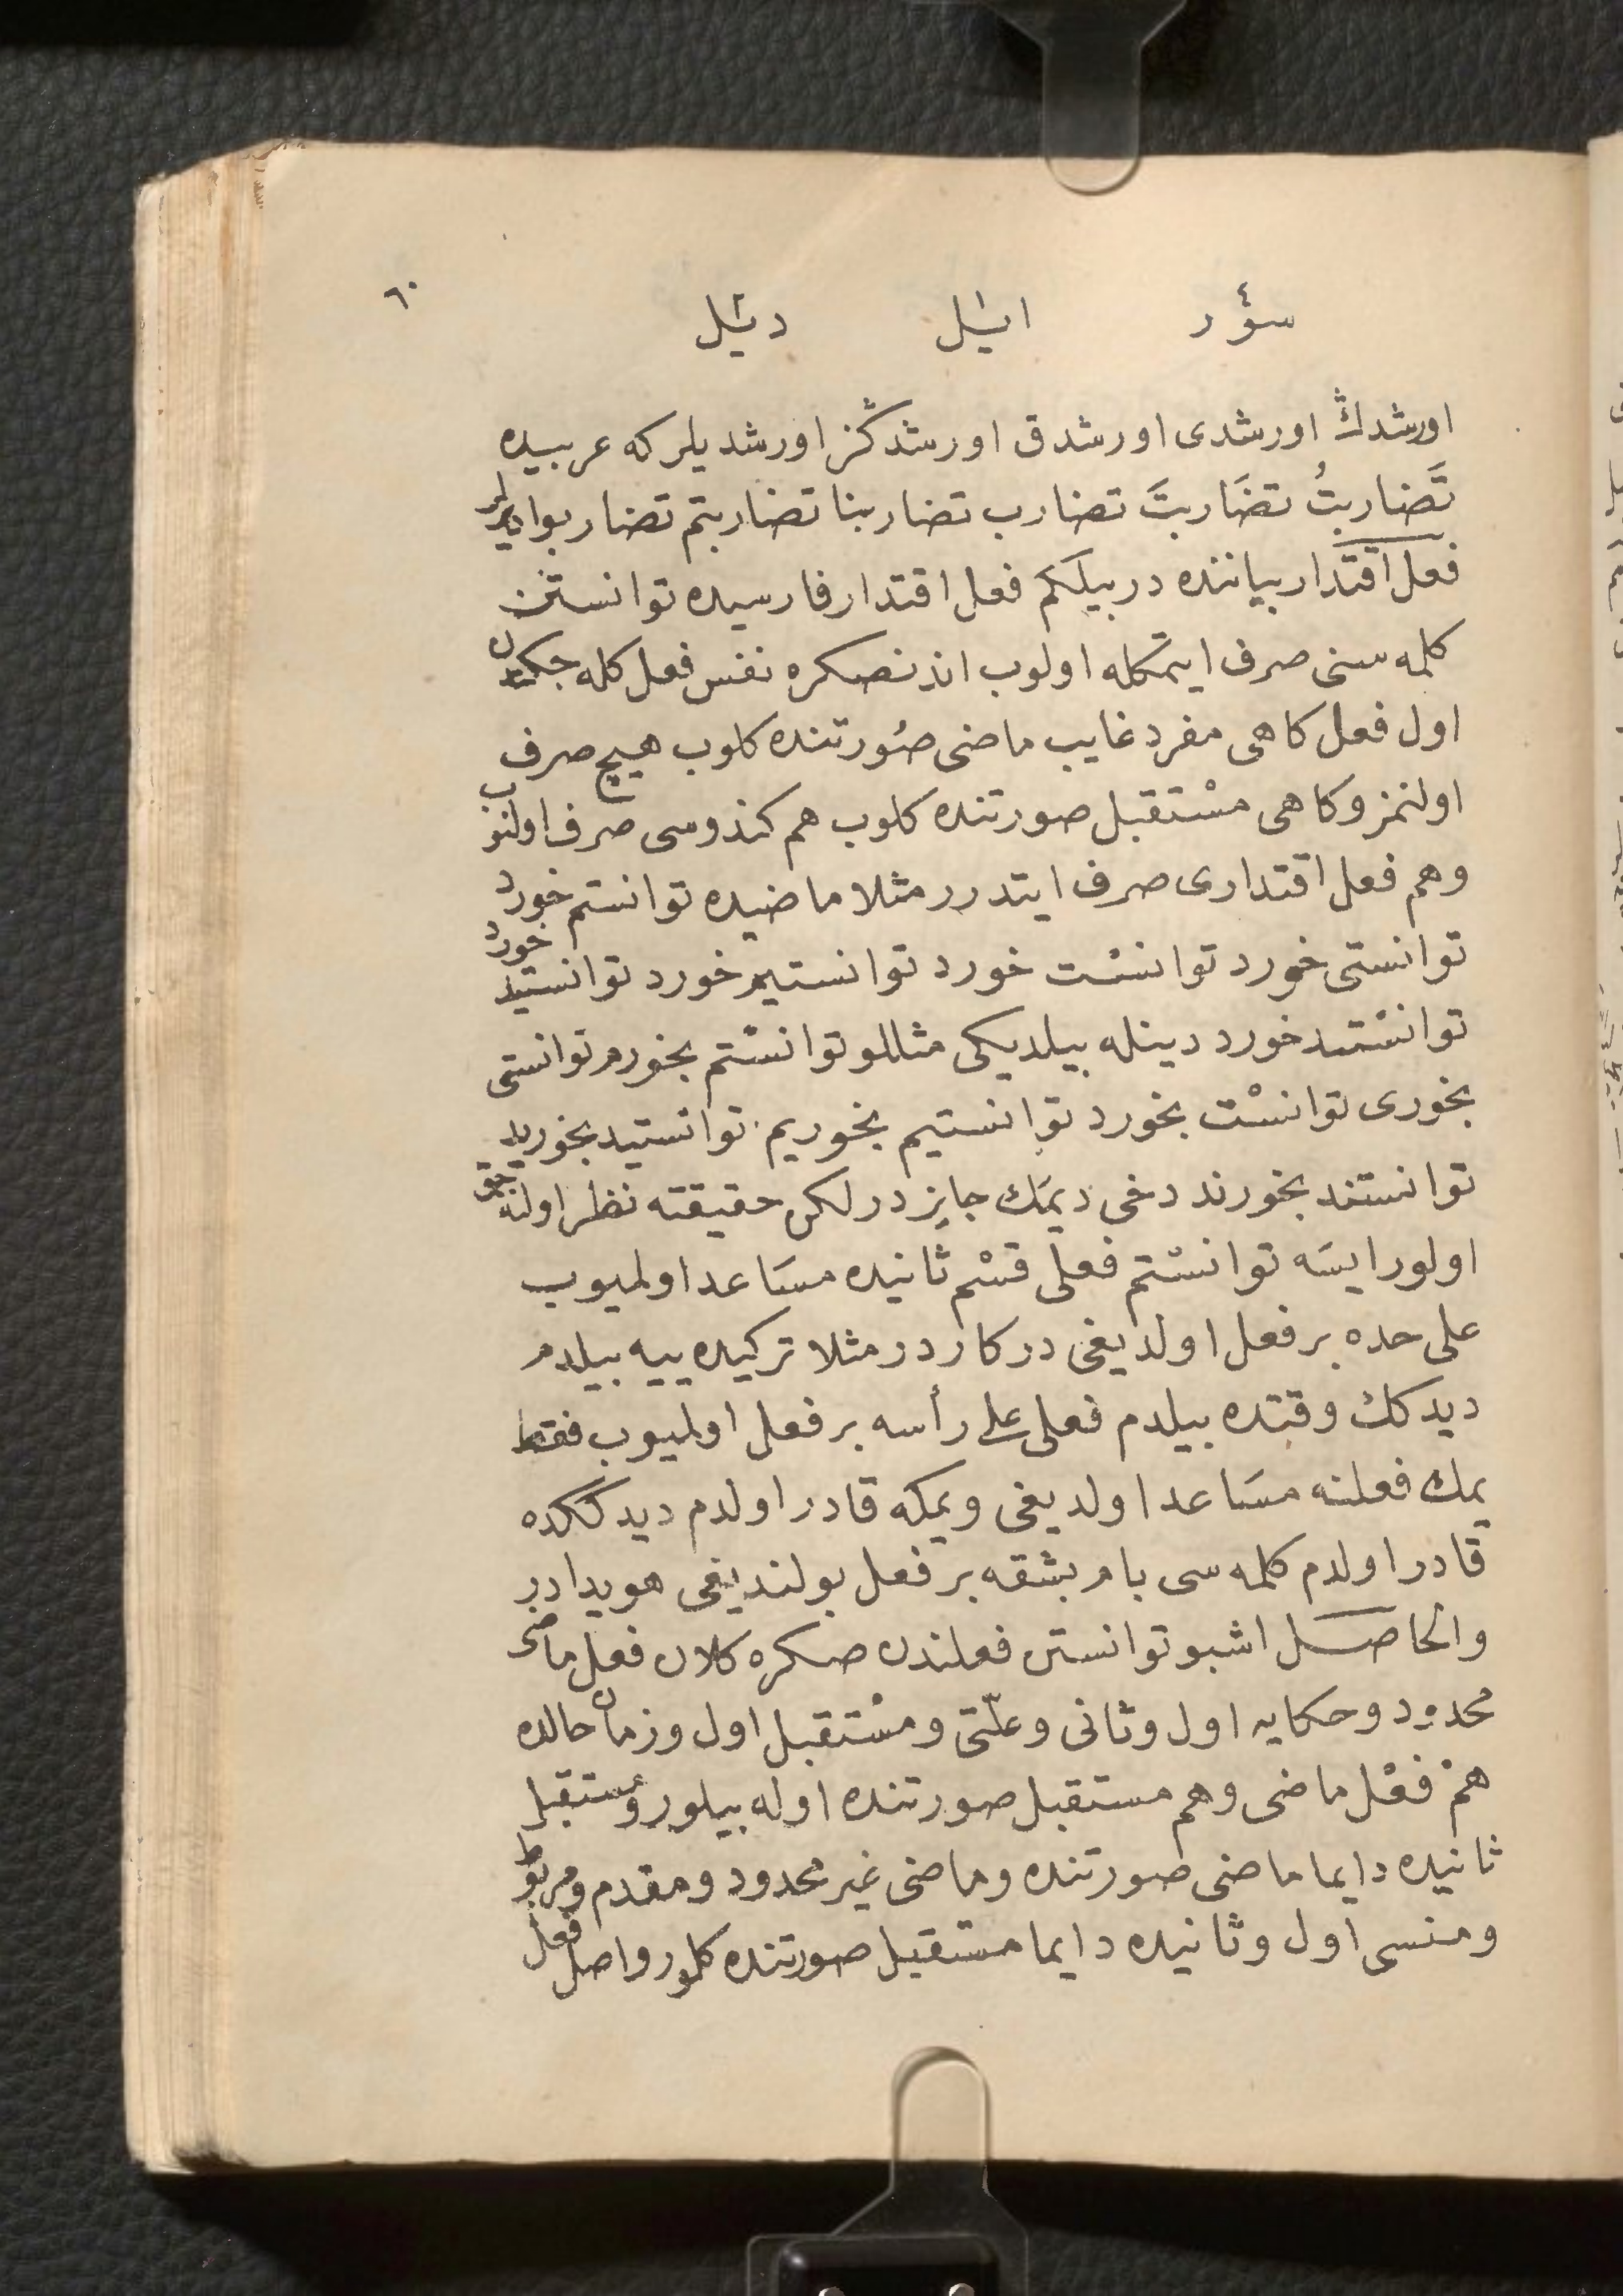 ٦٠
سؤر ایٔل دیٔل
اورشدڭ اورشدی اورشدق اورشدڭز اورشدیلر که عربیده
تَضاربتُ تضَاربتَ تضارب تضاربنا تضاربتم تضاربوا دیرلر
فعل اقتدار بیاننده در بیلکم فعل اقتدار فارسیده توانستن
کلمه سنی صرف ایتمکله اولوب اندنصکره نفس فعل کله جکدن
اول فعل کاهی مفرد غایب ماضی صُورتنده کلوب هیچ صرف
اولنمز وکاهی مسْتقبل صورتنده کلوب هم کندوسی صرف اولنوب
وهم فعل اقتداری صرف ایتدرر مثلا ماضیده توانستم خورد
توانستی خورد توانسْت خورد توانستیم خورد توانستید خورد
توانسْتند خورد دینله بیلدیکی مثاللو توانسْتم بخورم توانستی
بخوری توانسْت بخورد توانستیم بخوریم توانستید بخورید
توانستند بخورند دخی دیمَك جایز در لکن حقیقته نظر اولنه جق
اولور ایسَه توانسْتم فعلی قسْم ثانیده مسَاعد اولمیوب
علی حده بر فعل اولدیغی درکار در مثلا ترکیده ییه بیلدم
دیدکك وقتده بیلدم فعلی علی رأسه بر فعل اولمیوب فقط
یمك فعلنه مسَاعد اولدیغی ویمکه قادر اولدم دیدکڭده
قادر اولدم کلمه سی بام بشقه بر فعل بولندیغی هویدا در
والحاصل اشبو توانستن فعلندن صکره کلان فعل ماضی
محدود وحکایه اول وثانی وعلّتی ومسْتقبل اول وزمان حالده
همْ فعْل ماضی وهم مستقبل صورتنده اوله بیلور ومُستقبل
ثانیده دایما ماضی صورتنده وماضی غیر محدود ومقدم ومربوط
ومنسی اول وثانیده دایما مستقبل صورتنده کلور واصل فعل